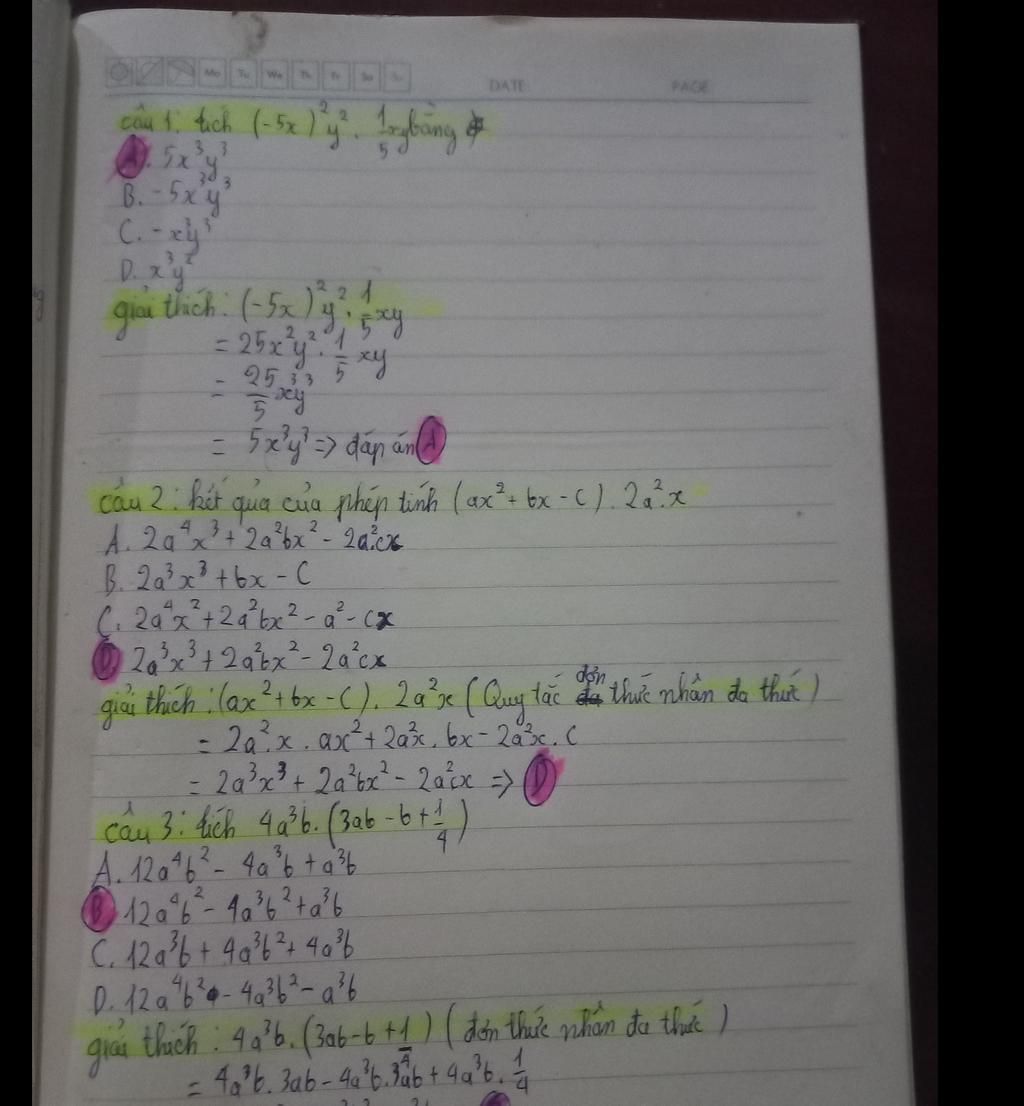 Mo Tu We Th Fr Sa Su DATE PAGE
câu 1: tích (-5x)²y². 1/5 xy bằng
A. 5x³y³
B. -5x³y³
C. -x³y³
D. x³y²
giải thích: (-5x)²y². 1/5 xy
= 25x²y². 1/5 xy
= 25/5 x³y³
= 5x³y³ => đáp án A
câu 2: kết quả của phép tính (ax² + bx - c). 2a².x
A. 2a⁴x³ + 2a²bx² - 2a²cx
B. 2a³x³ + bx - c
C. 2a⁴x² + 2a²bx² - a² - cx
D. 2a³x³ + 2a²bx² - 2a²cx
giải thích: (ax² + bx - c). 2a²x (Quy tắc đơn thức nhân đa thức)
= 2a².x . ax² + 2a²x . bx - 2a²x . c
= 2a³x³ + 2a²bx² - 2a²cx => D
câu 3: tích 4a³b. (3ab - b + 1/4)
A. 12a⁴b² - 4a³b + a³b
B. 12a⁴b² - 4a³b² + a³b
C. 12a³b + 4a³b² + 4a³b
D. 12a⁴b² - 4a³b² - a³b
giải thích: 4a³b. (3ab - b + 1/4) (đơn thức nhân đa thức)
= 4a³b. 3ab - 4a³b. 3ab + 4a³b. 1/4